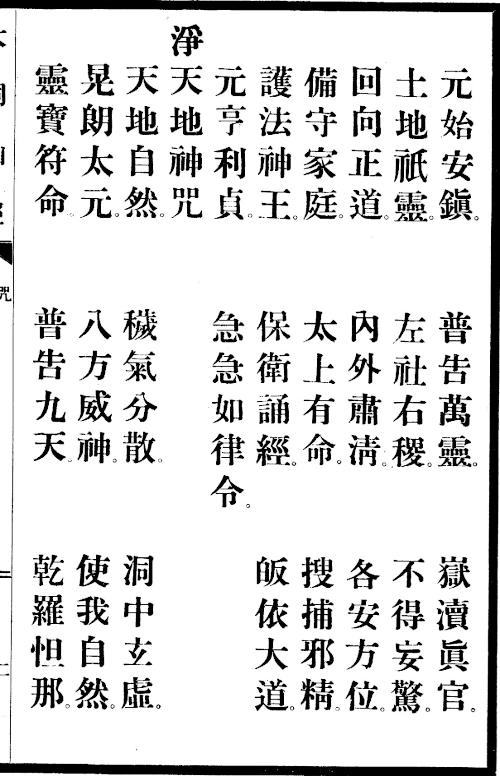 元始安鎭。普告萬靈。嶽瀆眞官。
土地祇靈。左社右稷。不得妄驚。
回向正道。內外肅淸。各安方位。
備守家庭。太上有命。搜捕邪精。
護法神王。保衛誦經。皈依大道。
元亨利貞。急急如律令。
淨天地神咒
天地自然。穢氣分散。洞中玄虛。
晃朗太元。八方威神。使我自然。
靈寶符命。普告九天。乾羅怛那。
咒